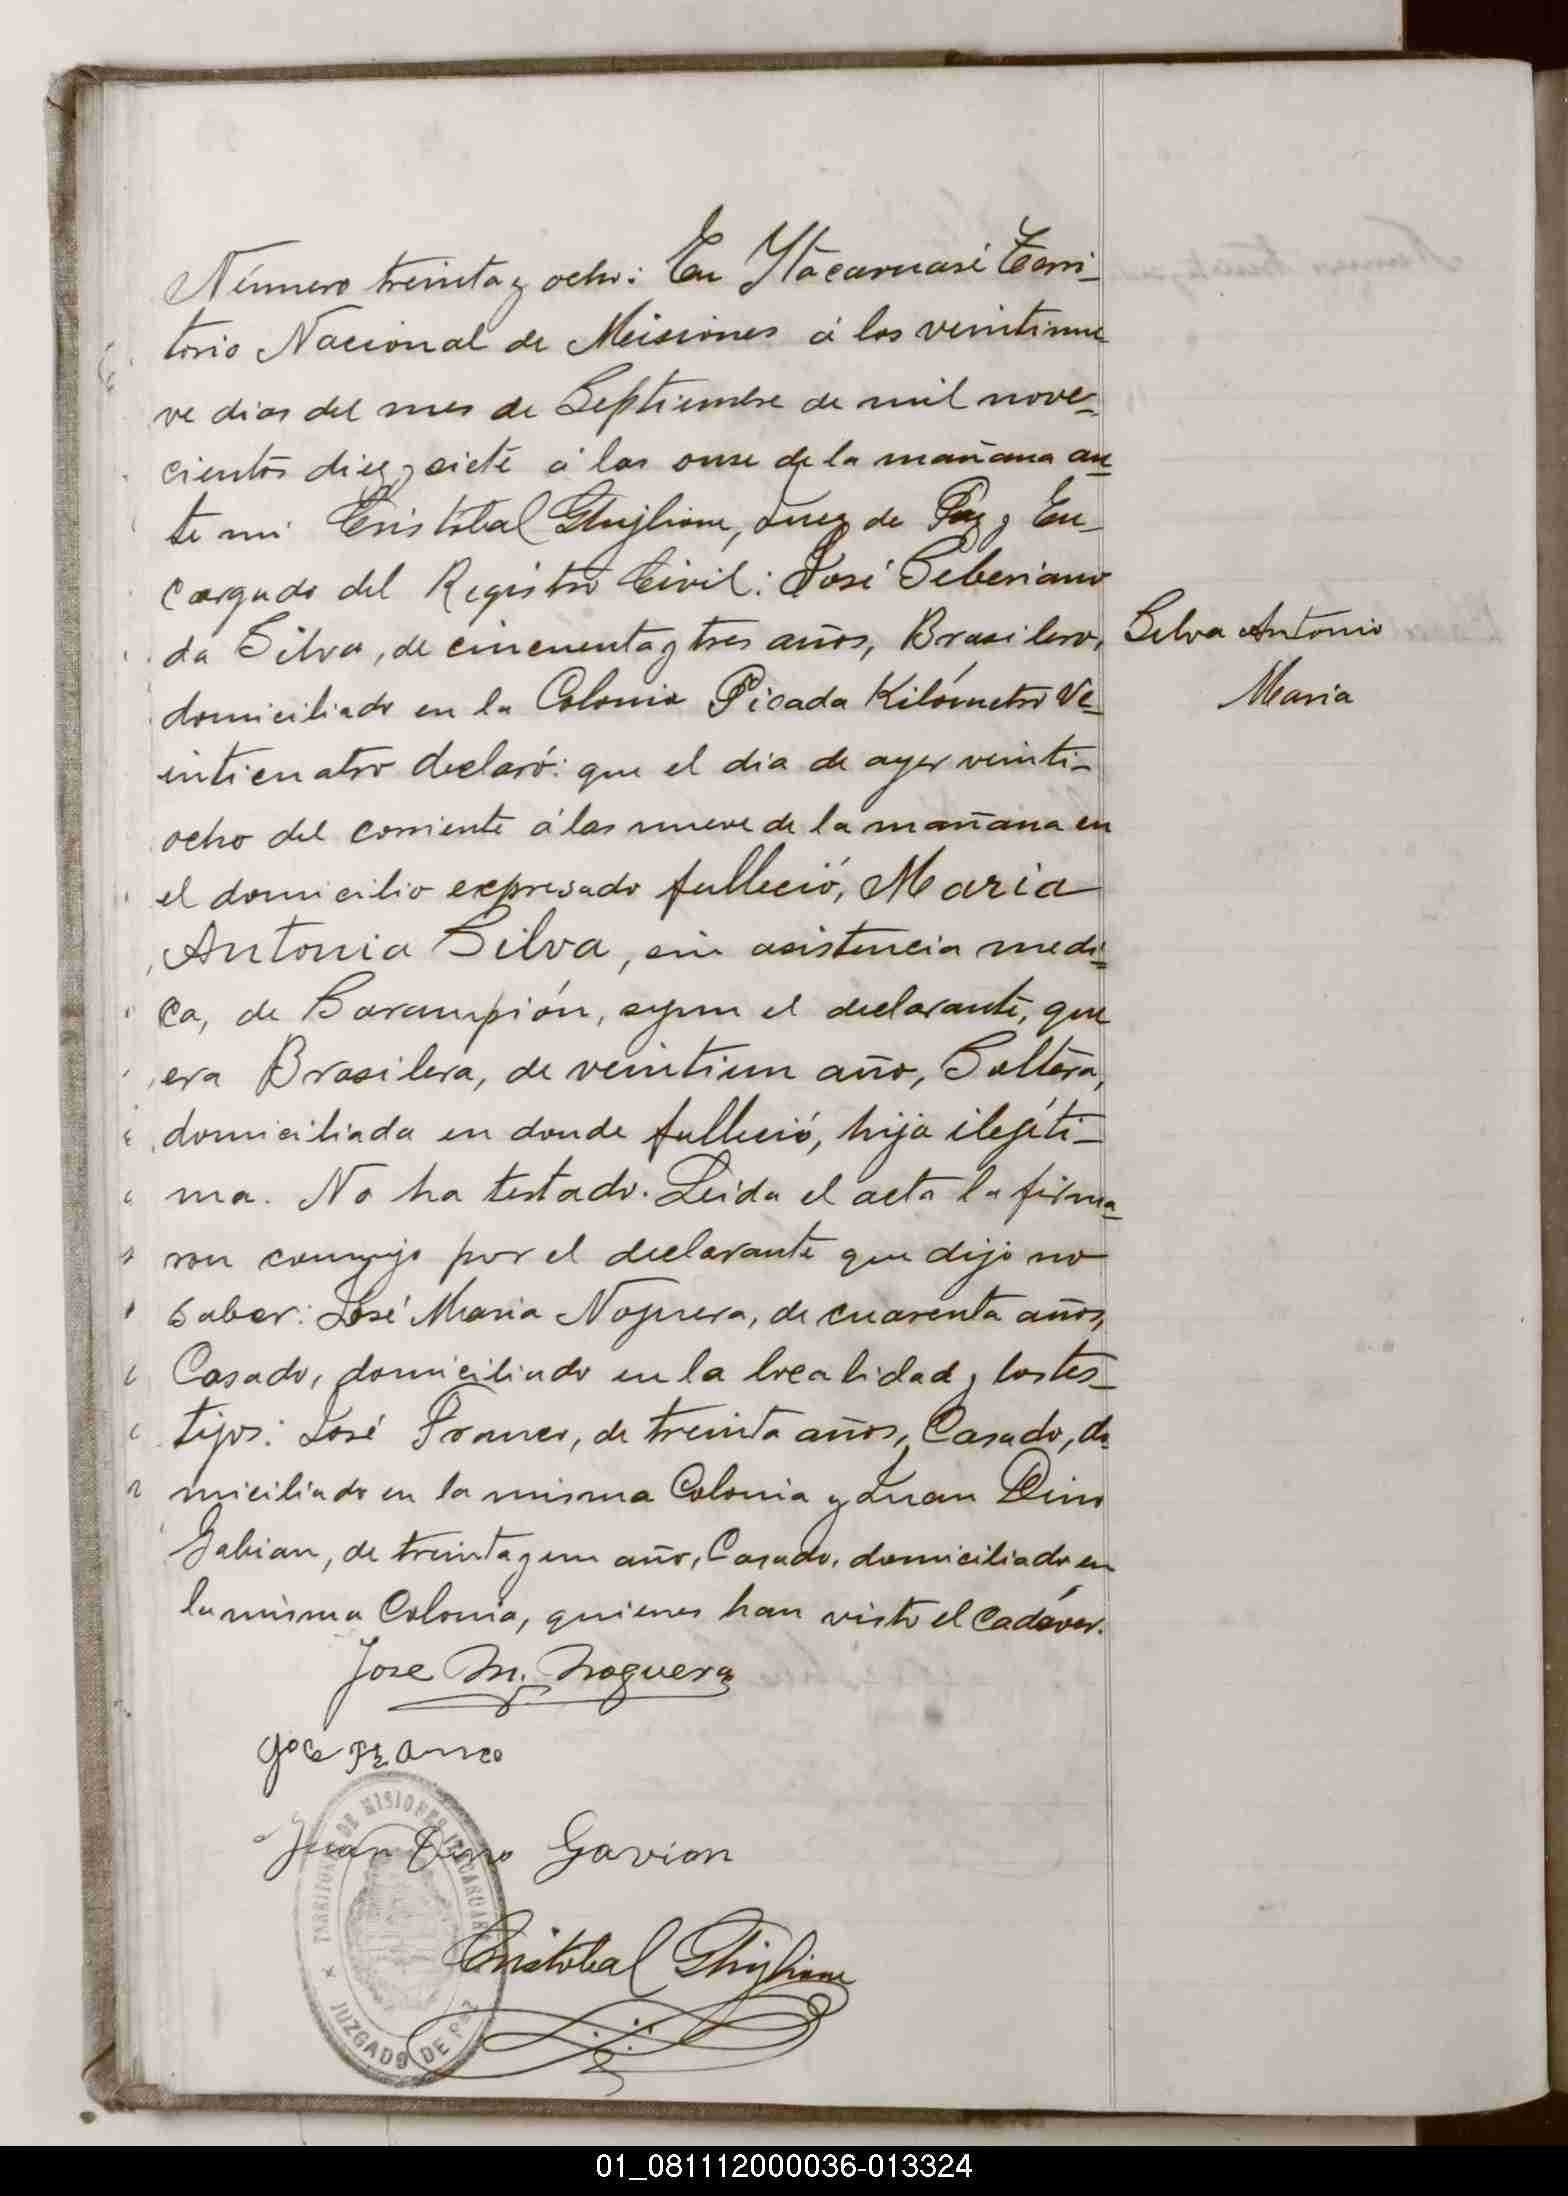 Número treinta y ocho: En Ytacaruaré Terri-
torio Nacional de Misiones á los veintinue
ve dias del mes de Septiembre de mil nove-
cientos diez y siete á las onse de la mañana an-
te mi Cristobal Ghiglione, Juez de Paz y En-
cargado del Registro Civil: José Seberiano
da Silva, de cincuenta y tres años, Brasilero,
domiciliado en la Colonia Picada Kilómetro Ve-
inticuatro declaró: que el dia de ayer veinti-
ocho del corriente á las nueve de la mañana en
el domicilio expresado falleció, Maria
Antonia Silva, sin asistencia medi-
ca, de Sarampión, segun el declarante, que
era Brasilera, de veintiun año, Soltera,
domiciliada en donde falleció, hija ilegíti-
ma. No ha testado. Leida el acta la firma-
ron conmigo por el declarante que dijo no
saber: José Maria Noguera, de cuarenta años,
Casado, domiciliado en la localidad y los tes-
tigos: José Franco, de treinta años, Casado, do
miciliado en la misma Colonia y Juan Dino
Gabian, de treinta y un año, Casado, domiciliado en
la misma Colonia, quienes han visto el Cadáver.
Silva Antonio
Maria
Jose M. Noguera
Jose Franco
Juan Dino Gavion
Cristobal Ghiglione
TERRITORIO DE MISIONES ITACARUARE
JUZGADO DE PAZ
01_081112000036-013324